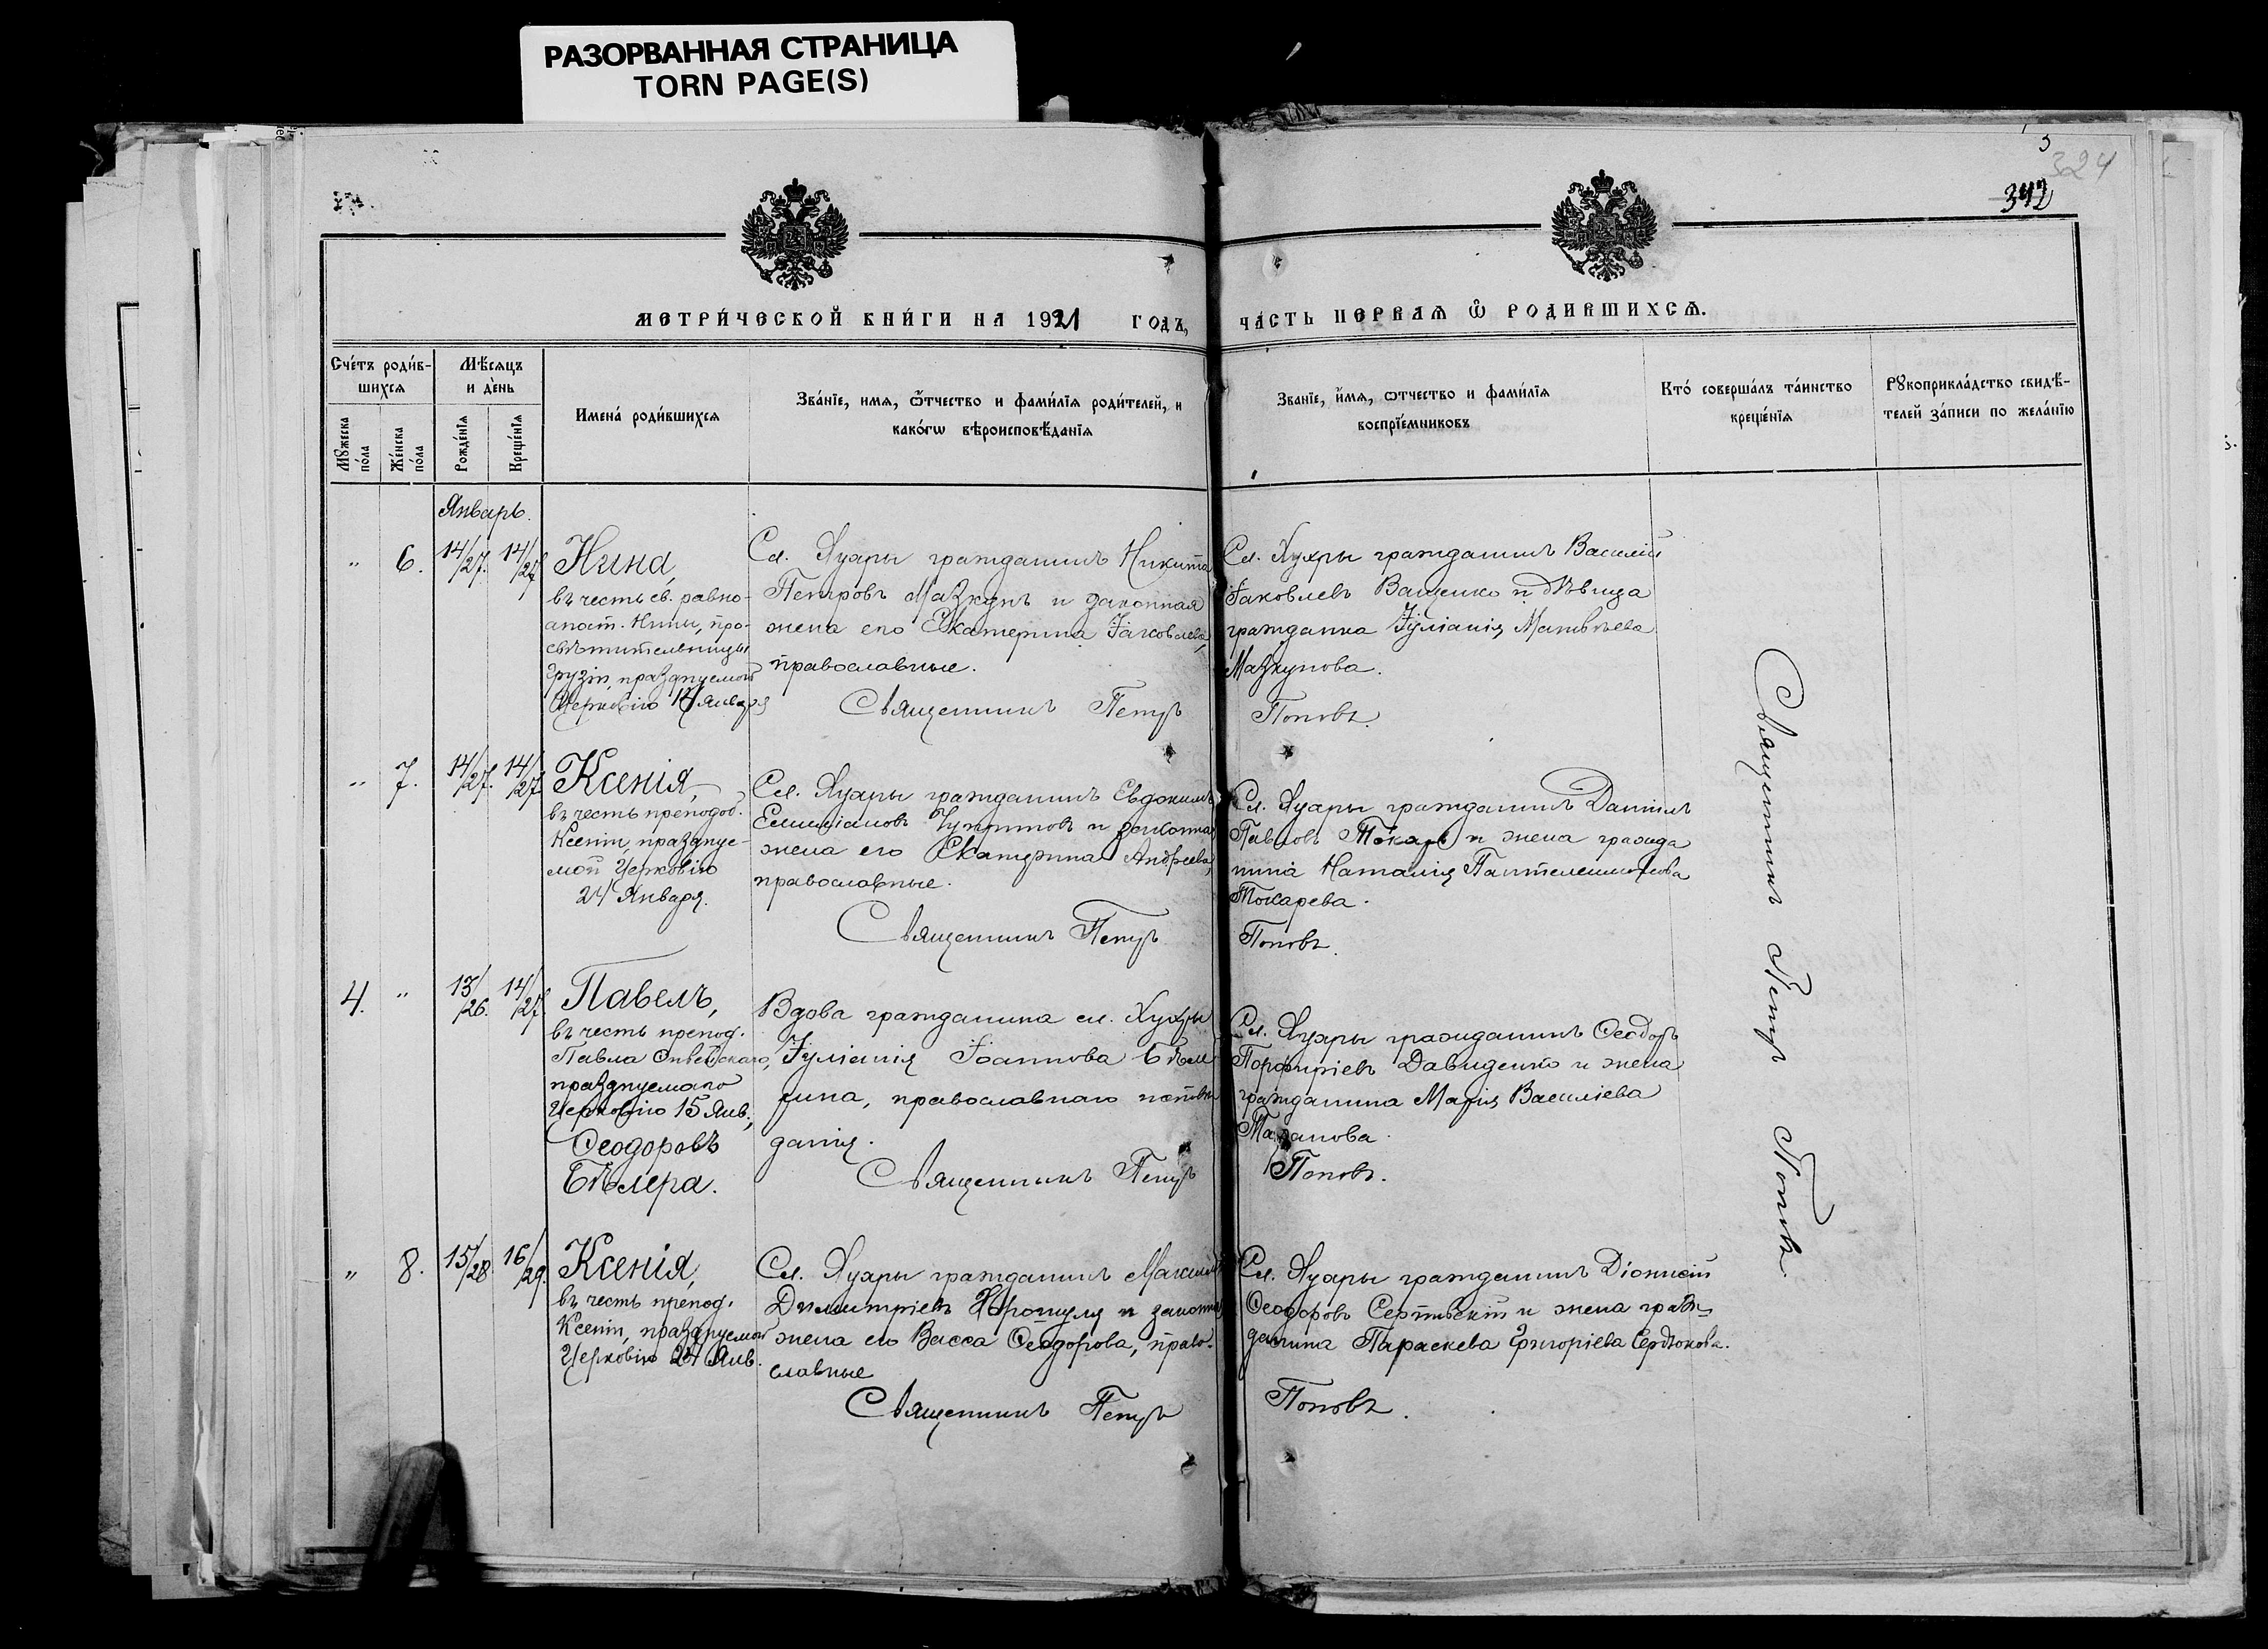 РАЗОРВАННАЯ СТРАНИЦА
TORN PAGE(S)
324
342
МЕТРИ́ЧЕСКОЙ КНИ́ГИ НА 1921 ГОДЪ,
ЧА́СТЬ ПЕРВАѦ Ѿ РОДИВШИХСѦ.
Сче́тъ роди́в-
шихся
Мѣ́сяцъ
и де́нь
Мꙋ́жеска по́ла
Же́нска по́ла
Рожде́нїѧ
Креще́нїѧ
Имена́ роди́вшихся
Зва́нїе, имѧ, ѻ҆́тчество и фами́лїѧ роди́телей, и
како́гѡ вѣроисповѣ́данїѧ
Зва́нїе, и́мѧ, ѻтчество и фами́лїѧ
воспрїе́мниковъ
Кто́ соверша́лъ та́инство
креще́нїѧ
Рꙋкоприкла́дство свидѣ́-
телей за́писи по жела́нїю
Январь.
" 6. 14/27. 14/27
Нина,
въ честь св. равно-
апост. Нины, про-
свѣтительницы
Грузіи, празднуемой
Церковію 14 января
Сл. Хухры гражданинъ Никита
Петровъ Мазкунъ и законная
жена его Екатерина Іаковлева,
православные.
Священникъ Петръ
Сл. Хухры гражданинъ Василій
Іаковлевъ Ващенко и дѣвица
гражданка Іуліанія Матвѣева
Мазкунова.
Поповъ.
" 7. 14/27. 14/27
Ксенія,
въ честь преподоб.
Ксеніи, празднуе-
мой Церковію
24 Января.
Сл. Хухры гражданинъ Евдокимъ
Емиліановъ и законная
жена его Екатерина Андреева,
православные.
Священникъ Петръ
Сл. Хухры гражданинъ Даніилъ
Павловъ Токарь и жена гражда
нина Наталія Пантелеимонова
Токарева.
Поповъ.
4. " 13/26. 14/27.
Павелъ,
въ честь препод.
Павла Ѳивейскаго,
празднуемаго
Церковію 15 Янв.,
Ѳеодоровъ
Бѣлера.
Вдова гражданина сл. Хухры
Іуліанія Іоаннова Бѣле
рина, православнаго исповѣ
данія.
Священникъ Петръ
Сл. Хухры гражданинъ Ѳеодоръ
Порфиріевъ Давиденко и жена
гражданина Марія Василіева
Поповъ.
" 8. 15/28 16/29.
Ксенія,
въ честь препод.
Ксеніи, празднуемой
Церковію 24 Янв.
Сл. Хухры гражданинъ Максимъ
Димитріевъ и законная
жена его Васса Ѳеодорова, право-
славные
Священникъ Петръ
Сл. Хухры гражданинъ Діонисій
Ѳеодоровъ и жена граж-
данина Параскева Григоріева Сердюкова.
Поповъ.
Священникъ Петръ Поповъ.